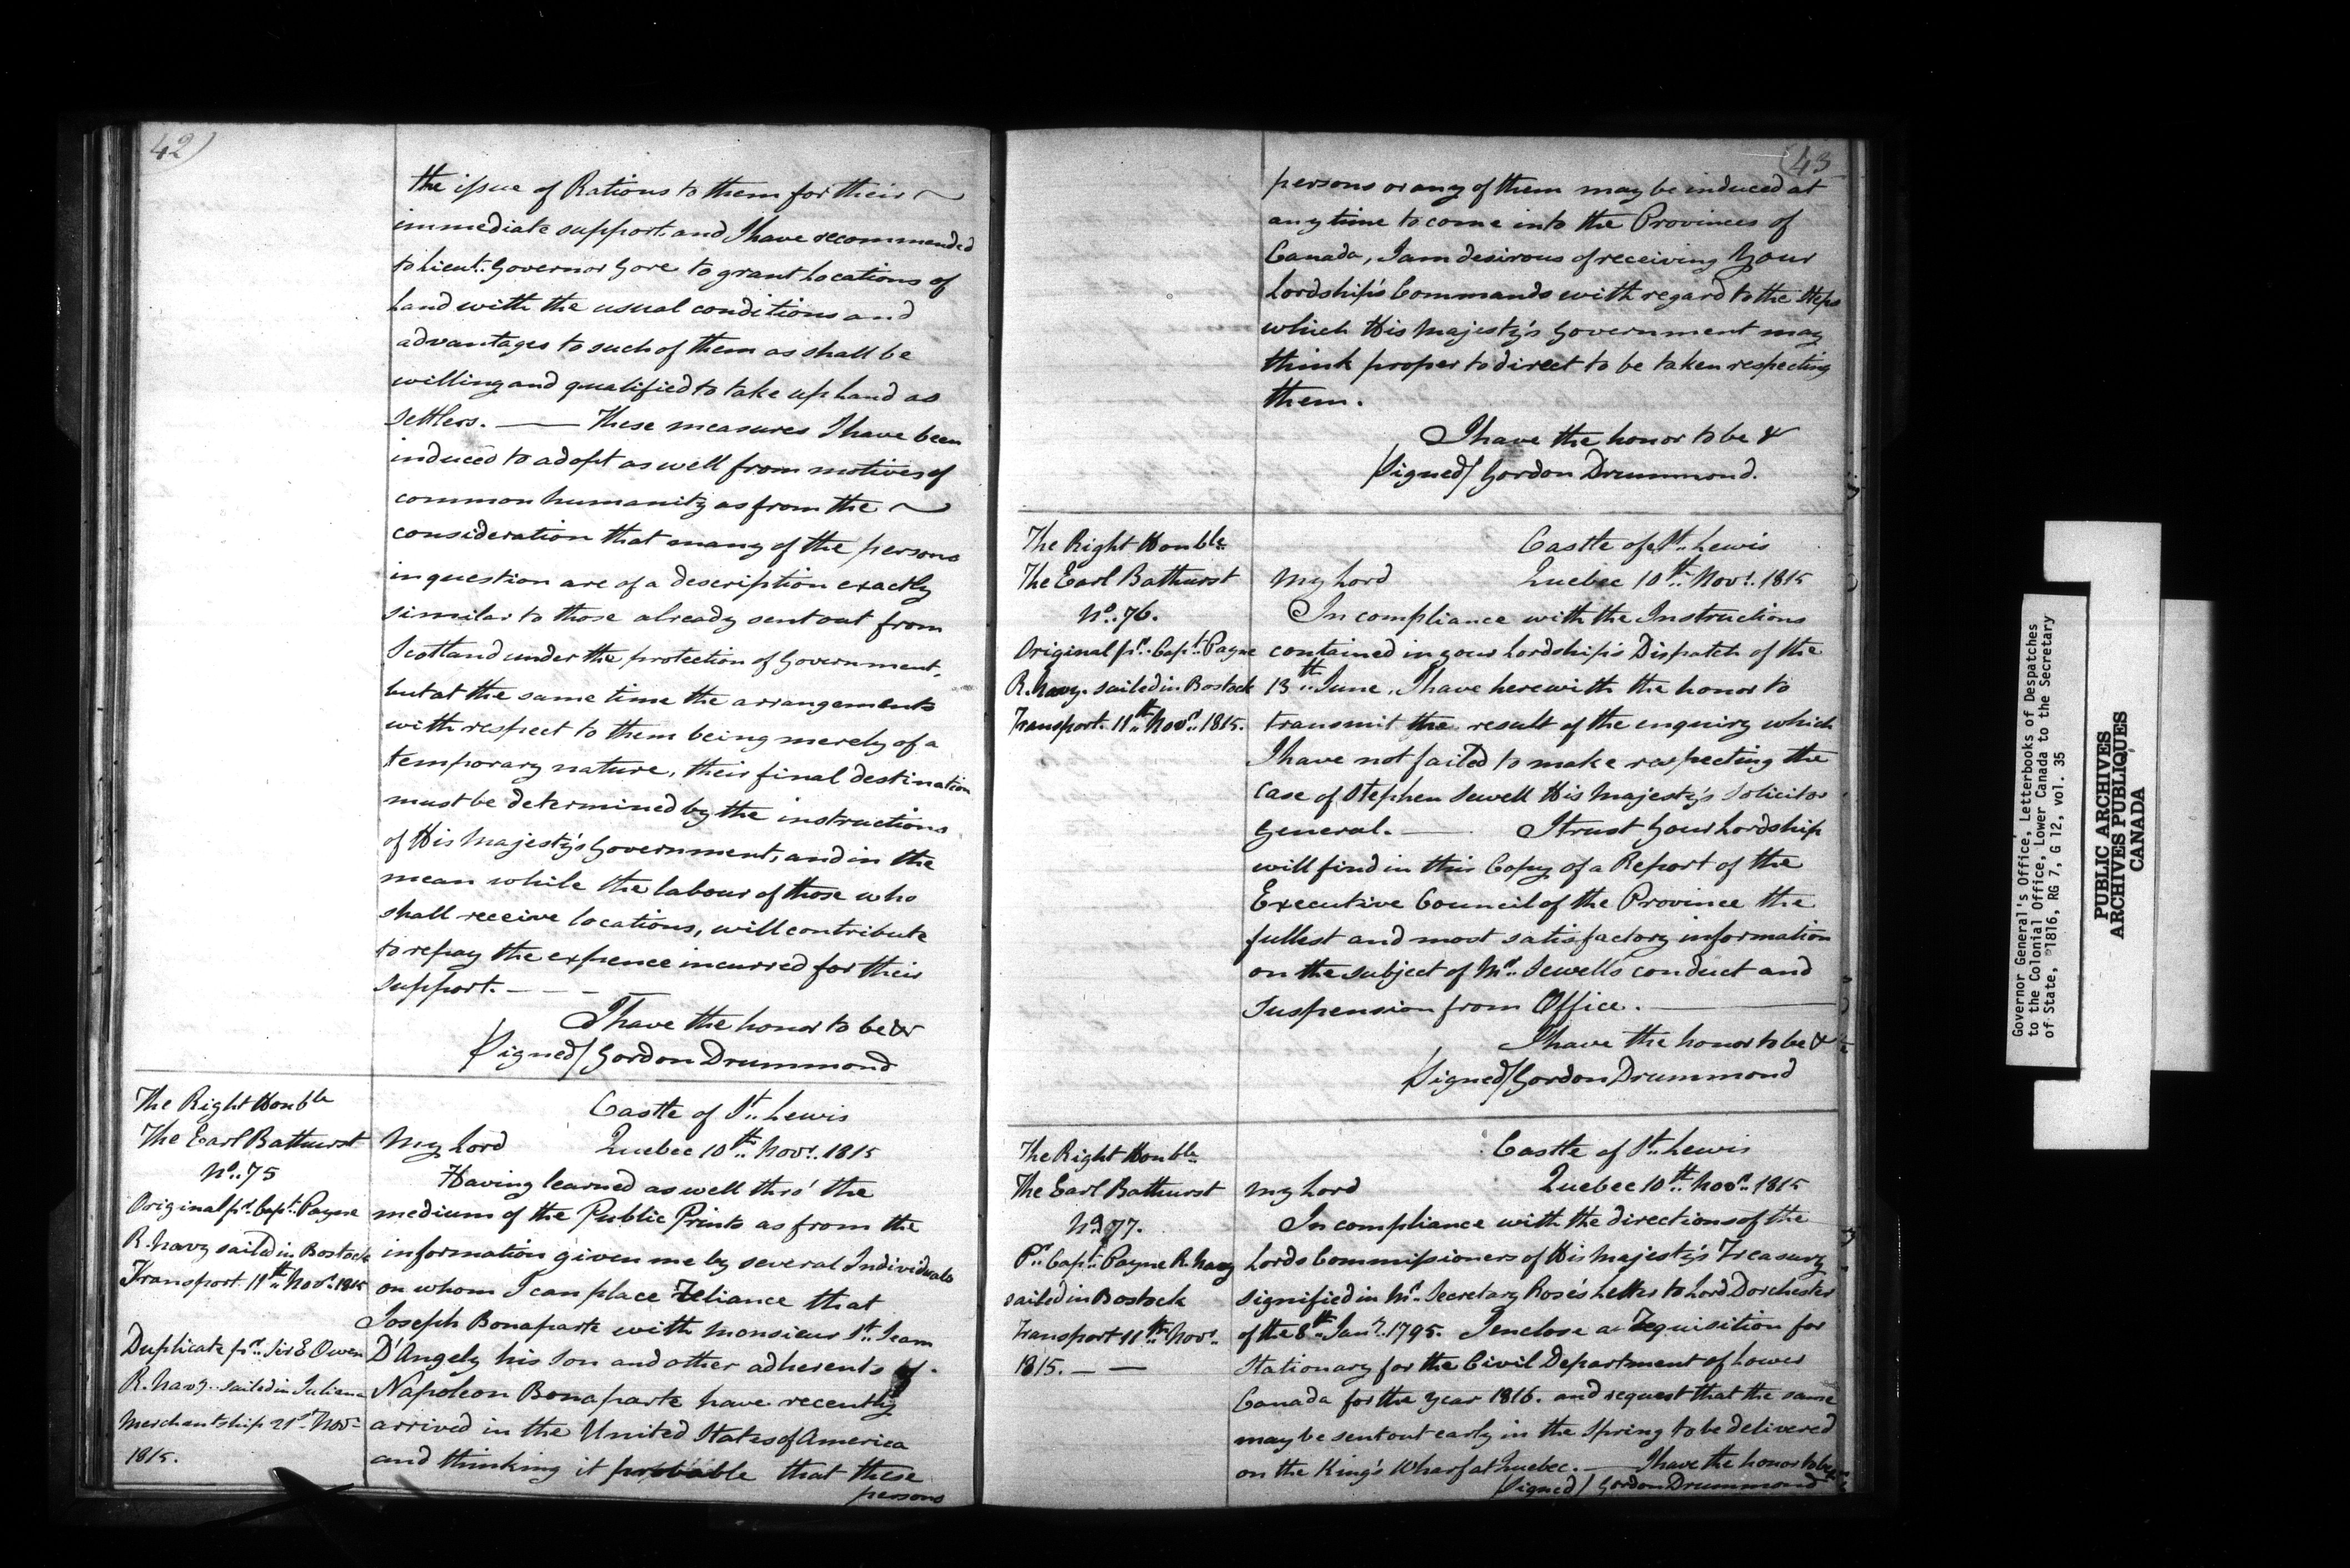 42)
the issue of Rations to them for their
immediate support and I have recommended
to Lieut. Governor Gore to grant Locations of
Land with the usual conditions and
advantages to such of them as shall be
willing and qualified to take up Land as
Settlers. — These measures I have been
induced to adopt as well from motives of
common humanity as from the
consideration that many of the persons
in question are of a description exactly
similar to those already sent out from
Scotland under the protection of Government,
but at the same time the arrangements
with respect to them being merely of a
temporary nature, their final destination
must be determined by the instructions
of His Majesty's Government, and in the
mean while the labour of those who
shall receive locations, will contribute
to repay the expence incurred for their
support. — — —
I have the honor to be &c
Signed/ Gordon Drummond
The Right Honble
The Earl Bathurst
No. 75
Original pr. Capt. Payne
R. Navy sailed in Bostock
Transport 11th Novr. 1815
Duplicate pr. Sir E Owen
R. Navy. sailed in Juliana
Merchantship 21st Novr
1815.
Castle of St. Lewis
My Lord Quebec 10th Novr. 1815
Having learned as well thro' the
medium of the Public Prints as from the
information given me by several Individuals
on whom I can place Reliance that
Joseph Bonaparte with Monsieur St. Jean
D'Angely his son and other adherents of
Napoleon Bonaparte have recently
arrived in the United States of America
and thinking it probable that these
persons
(43
persons or any of them may be induced at
any time to come into the Provinces of
Canada, I am desirous of receiving Your
Lordship's Commands with regard to the steps
which His Majesty's Government may
think proper to direct to be taken respecting
them.
I have the honor to be &
Signed/ Gordon Drummond.
The Right Honble.
The Earl Bathurst
No. 76.
Original pr. Capt. Payne
R. Navy. sailed in Bostock
Transport. 11th Novr. 1815.
Castle of St. Lewis
My Lord Quebec 10th Novr. 1815
In compliance with the Instructions
contained in your Lordship's Dispatch of the
13th June, I have herewith the honor to
transmit the result of the enquiry which
I have not failed to make respecting the
case of Stephen Sewell His Majesty's Solicitor
General. — I trust Your Lordship
will find in this Copy of a Report of the
Executive Council of the Province the
fullest and most satisfactory information
on the subject of Mr. Sewell's conduct and
suspension from Office. —
I have the honor to be &
Signed/ Gordon Drummond
The Right Honble.
The Earl Bathurst
No. 77.
Pr. Capt. Payne R. Navy
sailed in Bostock
Transport 11th Novr.
1815. — —
Castle of St. Lewis
My Lord Quebec 10th Novr. 1815
In compliance with the directions of the
Lords Commissioners of His Majesty's Treasury
signified in Mr. Secretary Rose's Letter to Lord Dorchester
of the 8th Jany. 1795. I enclose a Requisition for
Stationary for the Civil Department of Lower
Canada for the Year 1816. and request that the same
may be sent out early in the Spring to be delivered
on the King's Wharf at Quebec. — I have the honor to be
Signed/ Gordon Drummond
Governor General's Office, Letterbooks of Despatches
to the Colonial Office, Lower Canada to the Secretary
of State, 1816, RG 7, G 12, vol. 35
PUBLIC ARCHIVES
ARCHIVES PUBLIQUES
CANADA